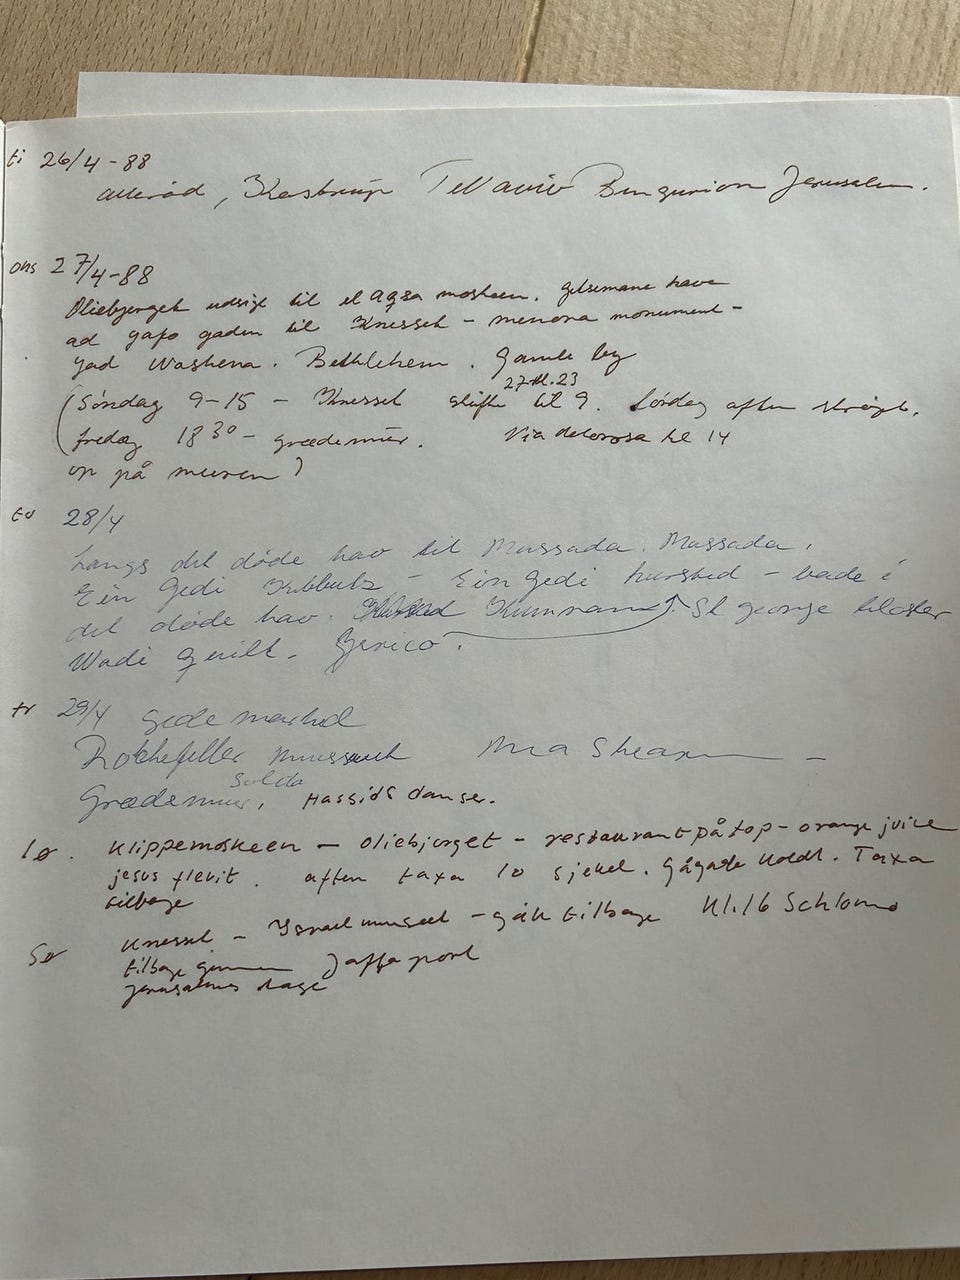 ti 26/4-88
allerød, Kastrup Tel aviv Bengurion Jerusalem.
ons 27/4-88
Oliebjerget udsigt til el aqsa moskeen. getsemane have
ad yafo gaden til Knesset - menora monument -
Yad Washena. Bethlehem. Gamle by
(Søndag 9-15 - Knesset til 9. Lørdag aften strøget.
27 kl. 23
fredag 18 30 - grædemur. Via delorosa kl 14
op på muren)
to 28/4
Langs det døde hav til Massada. Massada,
Ein Gedi Kibbutz - Ein gedi kursted - bade i
det døde hav. Kumman St george kloster
Wadi Quilt. Jerico.
fr 29/4 Gede marked
Rotchefeller Mea Shearim -
Grædemur, Hassids danse.
lø. Klippemoskeen - oliebjerget - restaurant på top - orange juice
jesus flevit. aften taxa 10 sjekel. Gågade koldt. Taxa
tilbage
Sø Knesset - Israel museet - gik tilbage Kl. 16 Schlomo
tilbage gennem Jaffa port
Jerusalems tage